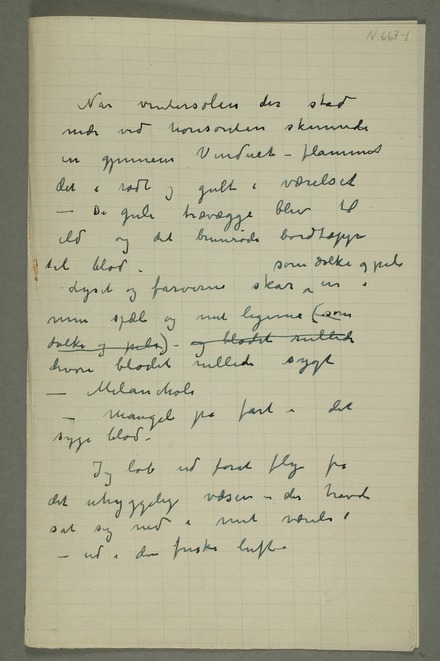 N 667-1
Når vintersolen der stod
nede ved horisonten skinnede
in gjennem Vinduet – flammet
det i rødt og gult i værelset
– De gule trævægge blev til
ild og det brunrøde bordtæppe
til blod –
som dolke og pile
Lyset og farverne skar in i
min sjæl og mit legeme (som
dolke og pile) – og blodet rullede
hvori blodet rullede sygt
– Melankoli
– Mangel på fart i det
syge blod –
Jeg løb ud forat fly fra
det uhyggelige væsen – der havde
sat sig ned i mit værelse
– ud i den friske luft –